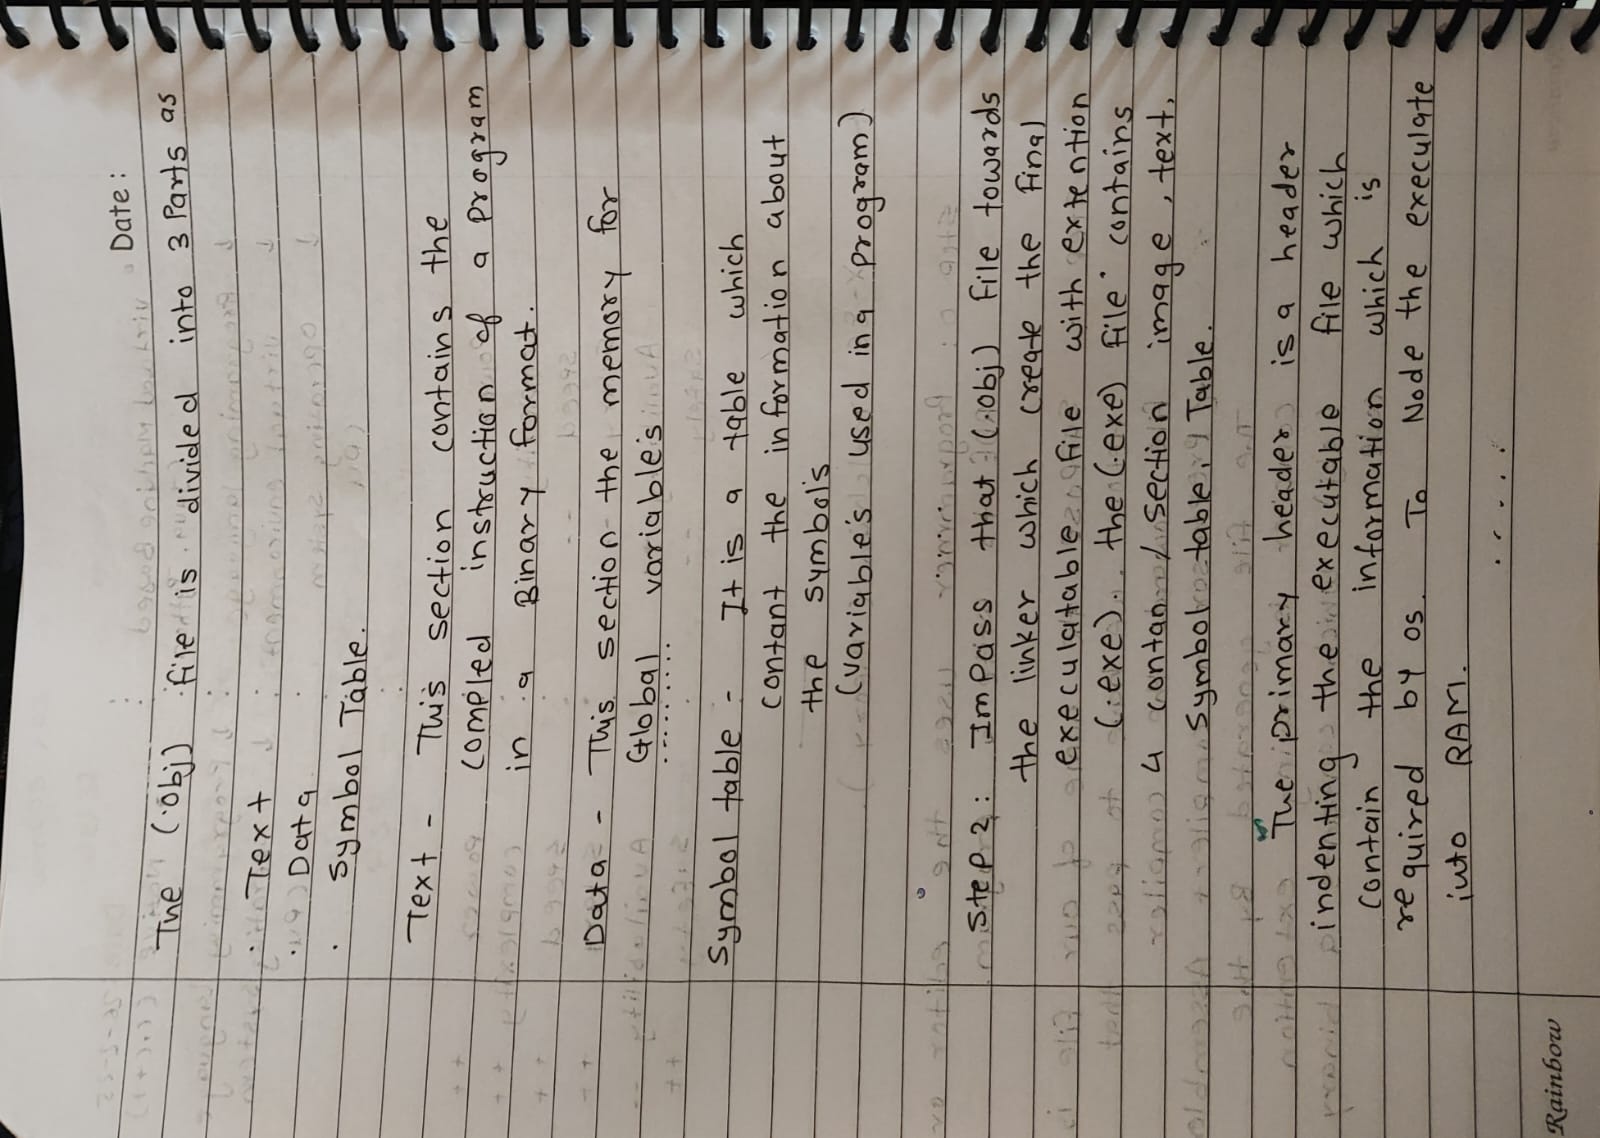 Date:
The (.obj) file is divided into 3 Parts as
. Text
. Data
. Symbol Table.
Text - This section contains the
compled instruction of a program
in a Binary format.
Data - This section the memory for
Global variable's
........
Symbol table - It is a table which
contant the information about
the symbol's
(variable's used in a program)
Step 2: Im Pass that (.obj) file towards
the linker which create the final
execulatable file with extention
(.exe). the (.exe) file contains
4 contan/section image, text,
symbol table, Table.
The primary header is a header
indenting the executable file which
contain the information which is
required by os. To Node the execulate
into RAM.
.....
Rainbow